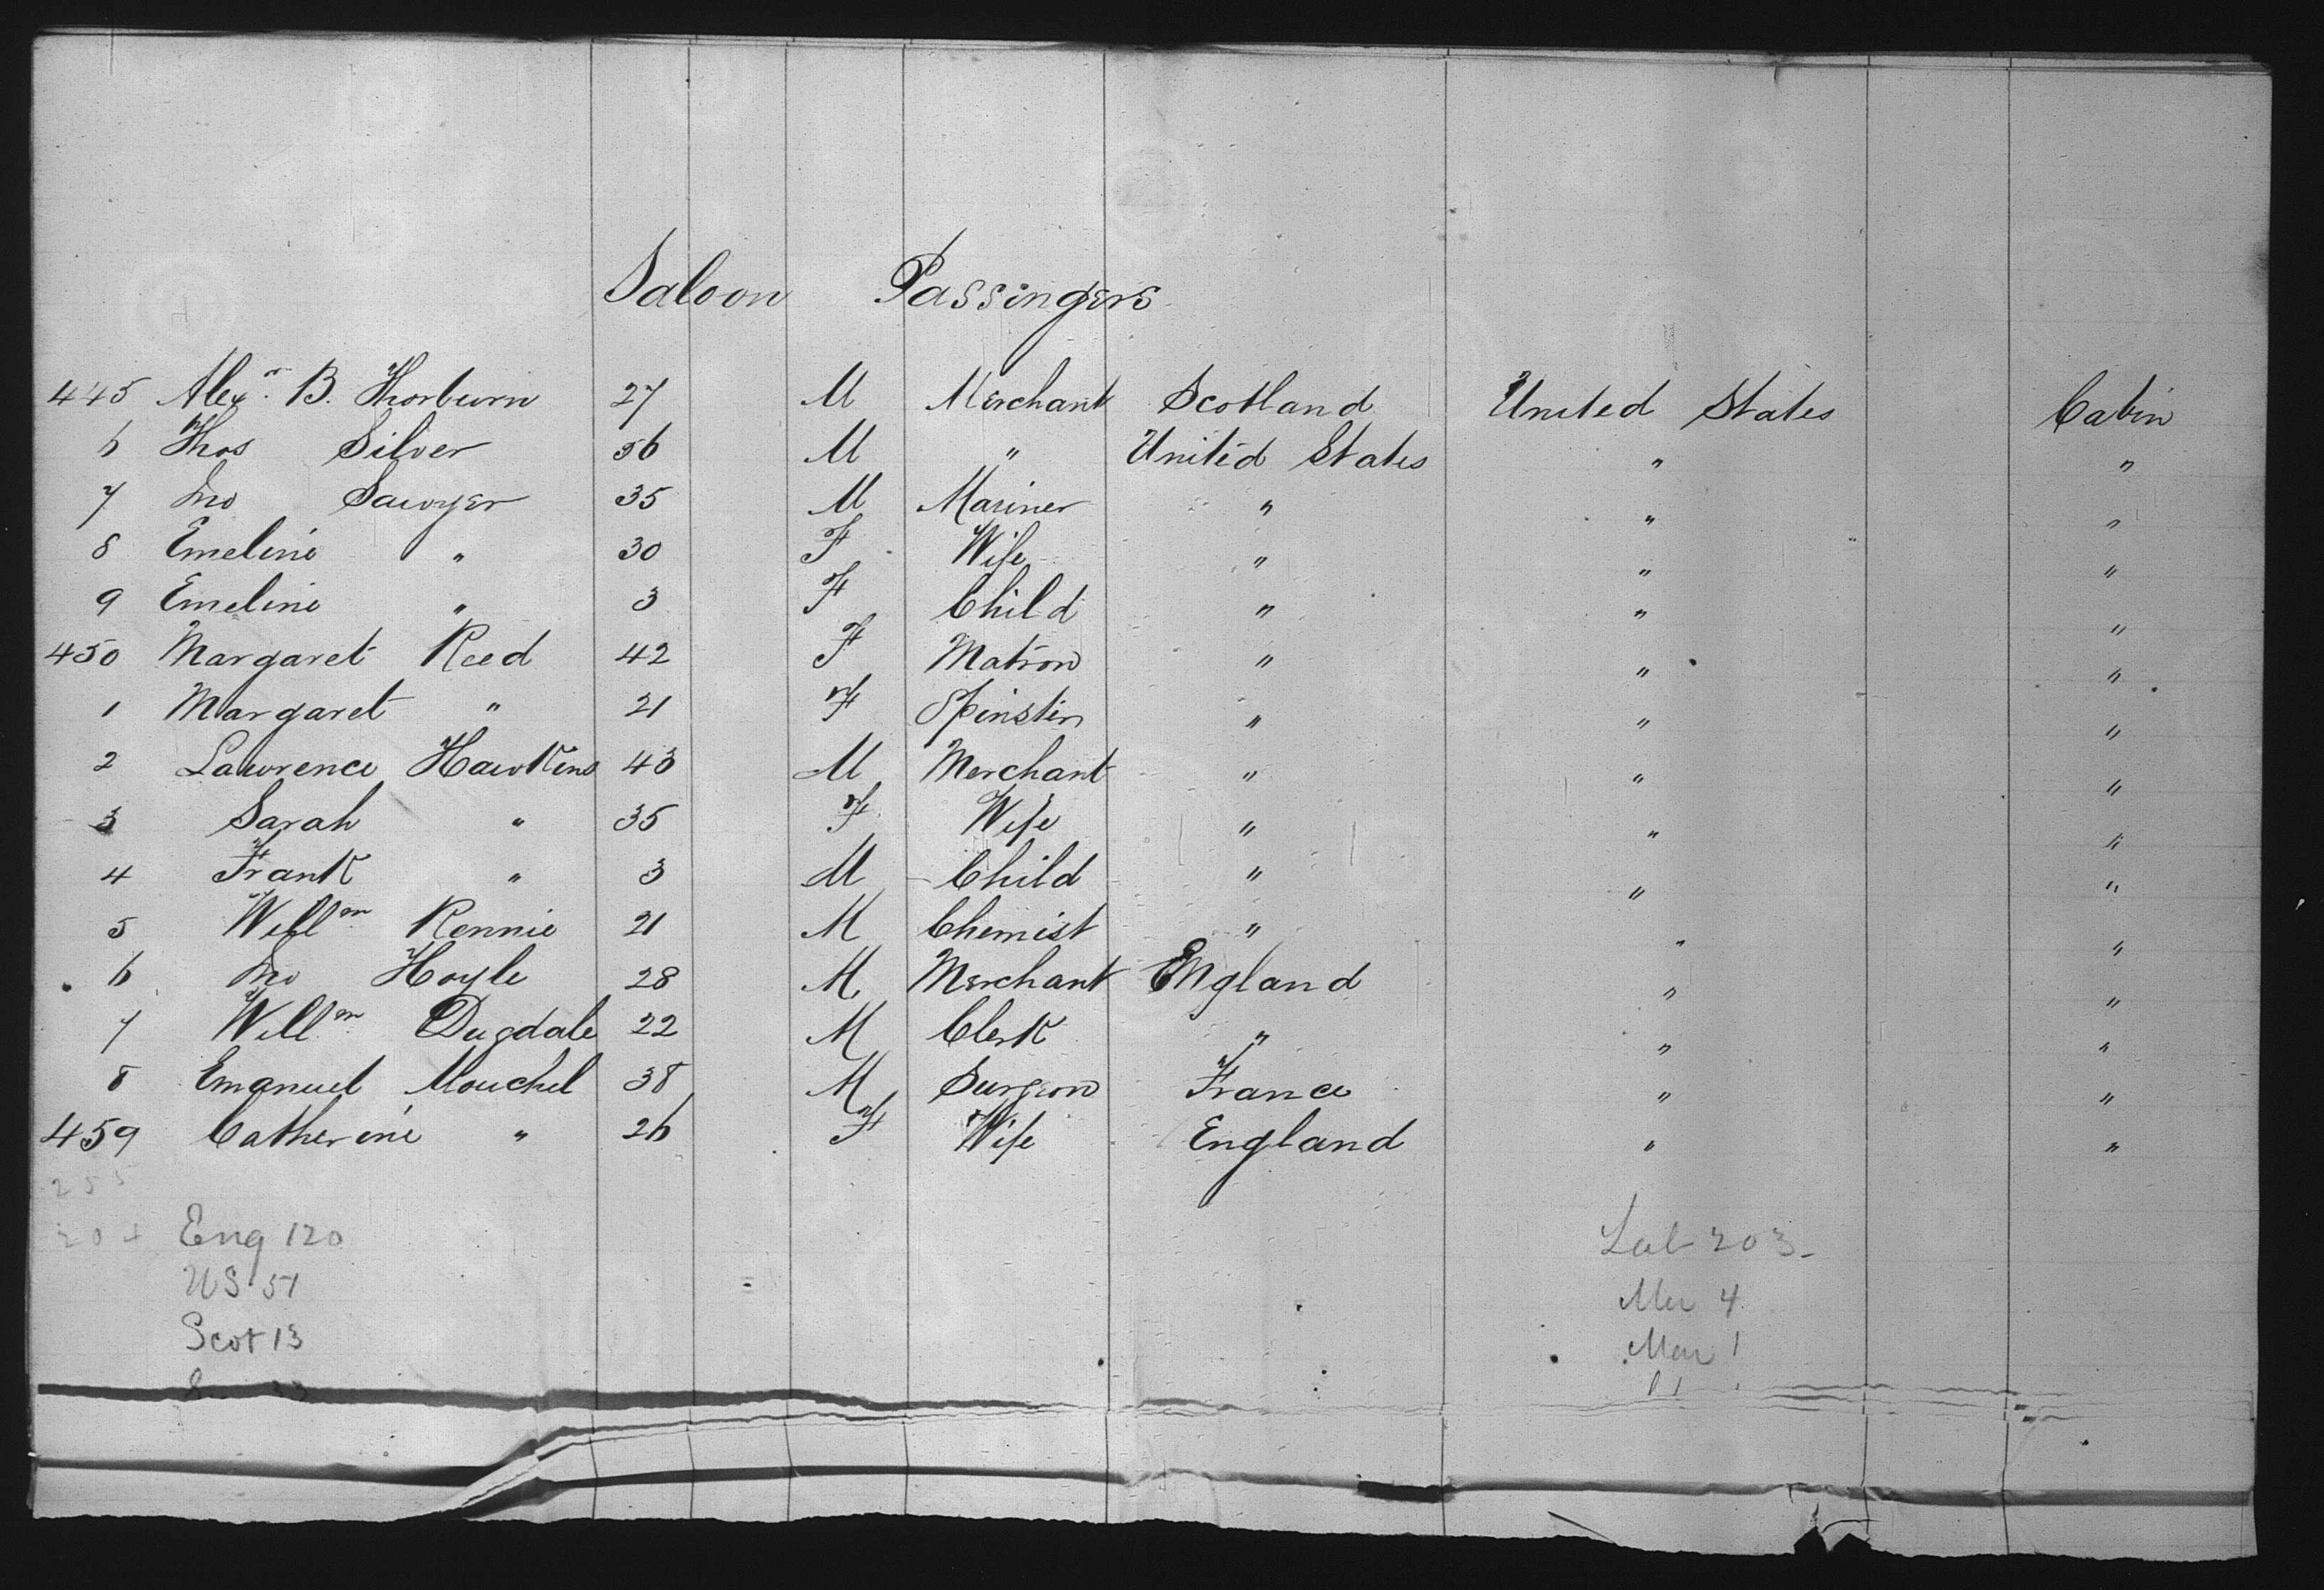 Saloon Passingers
445 Alexr. B. Thorburn 27 M Merchant Scotland United States Cabin
6 Thos Silver 56 M " United States " "
7 Jno Sawyer 35 M Mariner " " "
8 Emeline " 30 F Wife " " "
9 Emeline " 3 F Child " " "
450 Margaret Reed 42 F Matron " " "
1 Margaret " 21 F Spinster " " "
2 Lawrence Hawkins 43 M Merchant " " "
3 Sarah " 35 F Wife " " "
4 Frank " 3 M Child " " "
5 Willm Rennie 21 M Chemist " " "
6 Jno Hoyle 28 M Merchant England " "
7 Willm Dugdale 22 M Clerk " " "
8 Emanuel Mouchel 38 M Surgeon France " "
459 Catherine " 26 F Wife England " "
255
204 Eng 120 Lab 203
US 51 Mer 4
Scot 13 Mar 1